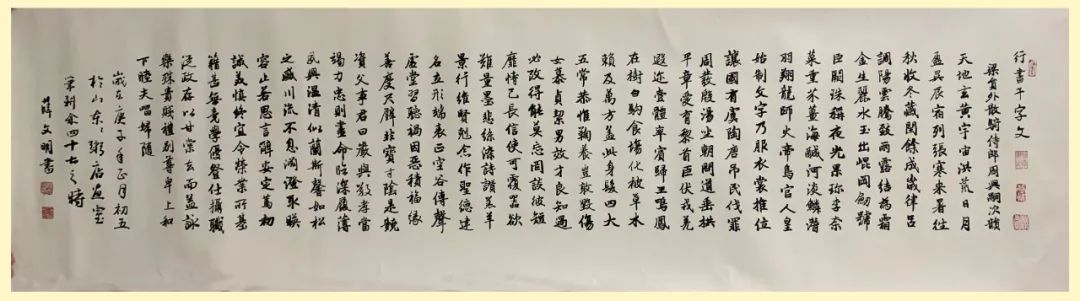 行書千字文
梁員外散騎侍郎周興嗣次韻
天地玄黃宇宙洪荒日月
盈昃辰宿列張寒來暑往
秋收冬藏閏餘成歲律呂
調陽雲騰致雨露結為霜
金生麗水玉出崐岡劍號
巨闕珠稱夜光果珍李柰
菜重芥薑海鹹河淡鱗潛
羽翔龍師火帝鳥官人皇
始制文字乃服衣裳推位
讓國有虞陶唐弔民伐罪
周發殷湯坐朝問道垂拱
平章愛育黎首臣伏戎羌
遐邇壹體率賓歸王鳴鳳
在樹白駒食場化被草木
賴及萬方蓋此身髮四大
五常恭惟鞠養豈敢毀傷
女慕貞絜男效才良知過
必改得能莫忘罔談彼短
靡恃己長信使可覆器欲
難量墨悲絲染詩讚羔羊
景行維賢剋念作聖德建
名立形端表正空谷傳聲
虛堂習聽禍因惡積福緣
善慶尺璧非寶寸陰是競
資父事君曰嚴與敬孝當
竭力忠則盡命臨深履薄
夙興溫凊似蘭斯馨如松
之盛川流不息淵澄取暎
容止若思言辭安定篤初
誠美慎終宜令榮業所基
籍甚無竟學優登仕攝職
從政存以甘棠去而益詠
樂殊貴賤禮別尊卑上和
下睦夫唱婦隨
歲在庚子年正月初五
於山東粥店畫室
筆耕余四十七之時
薛文明書